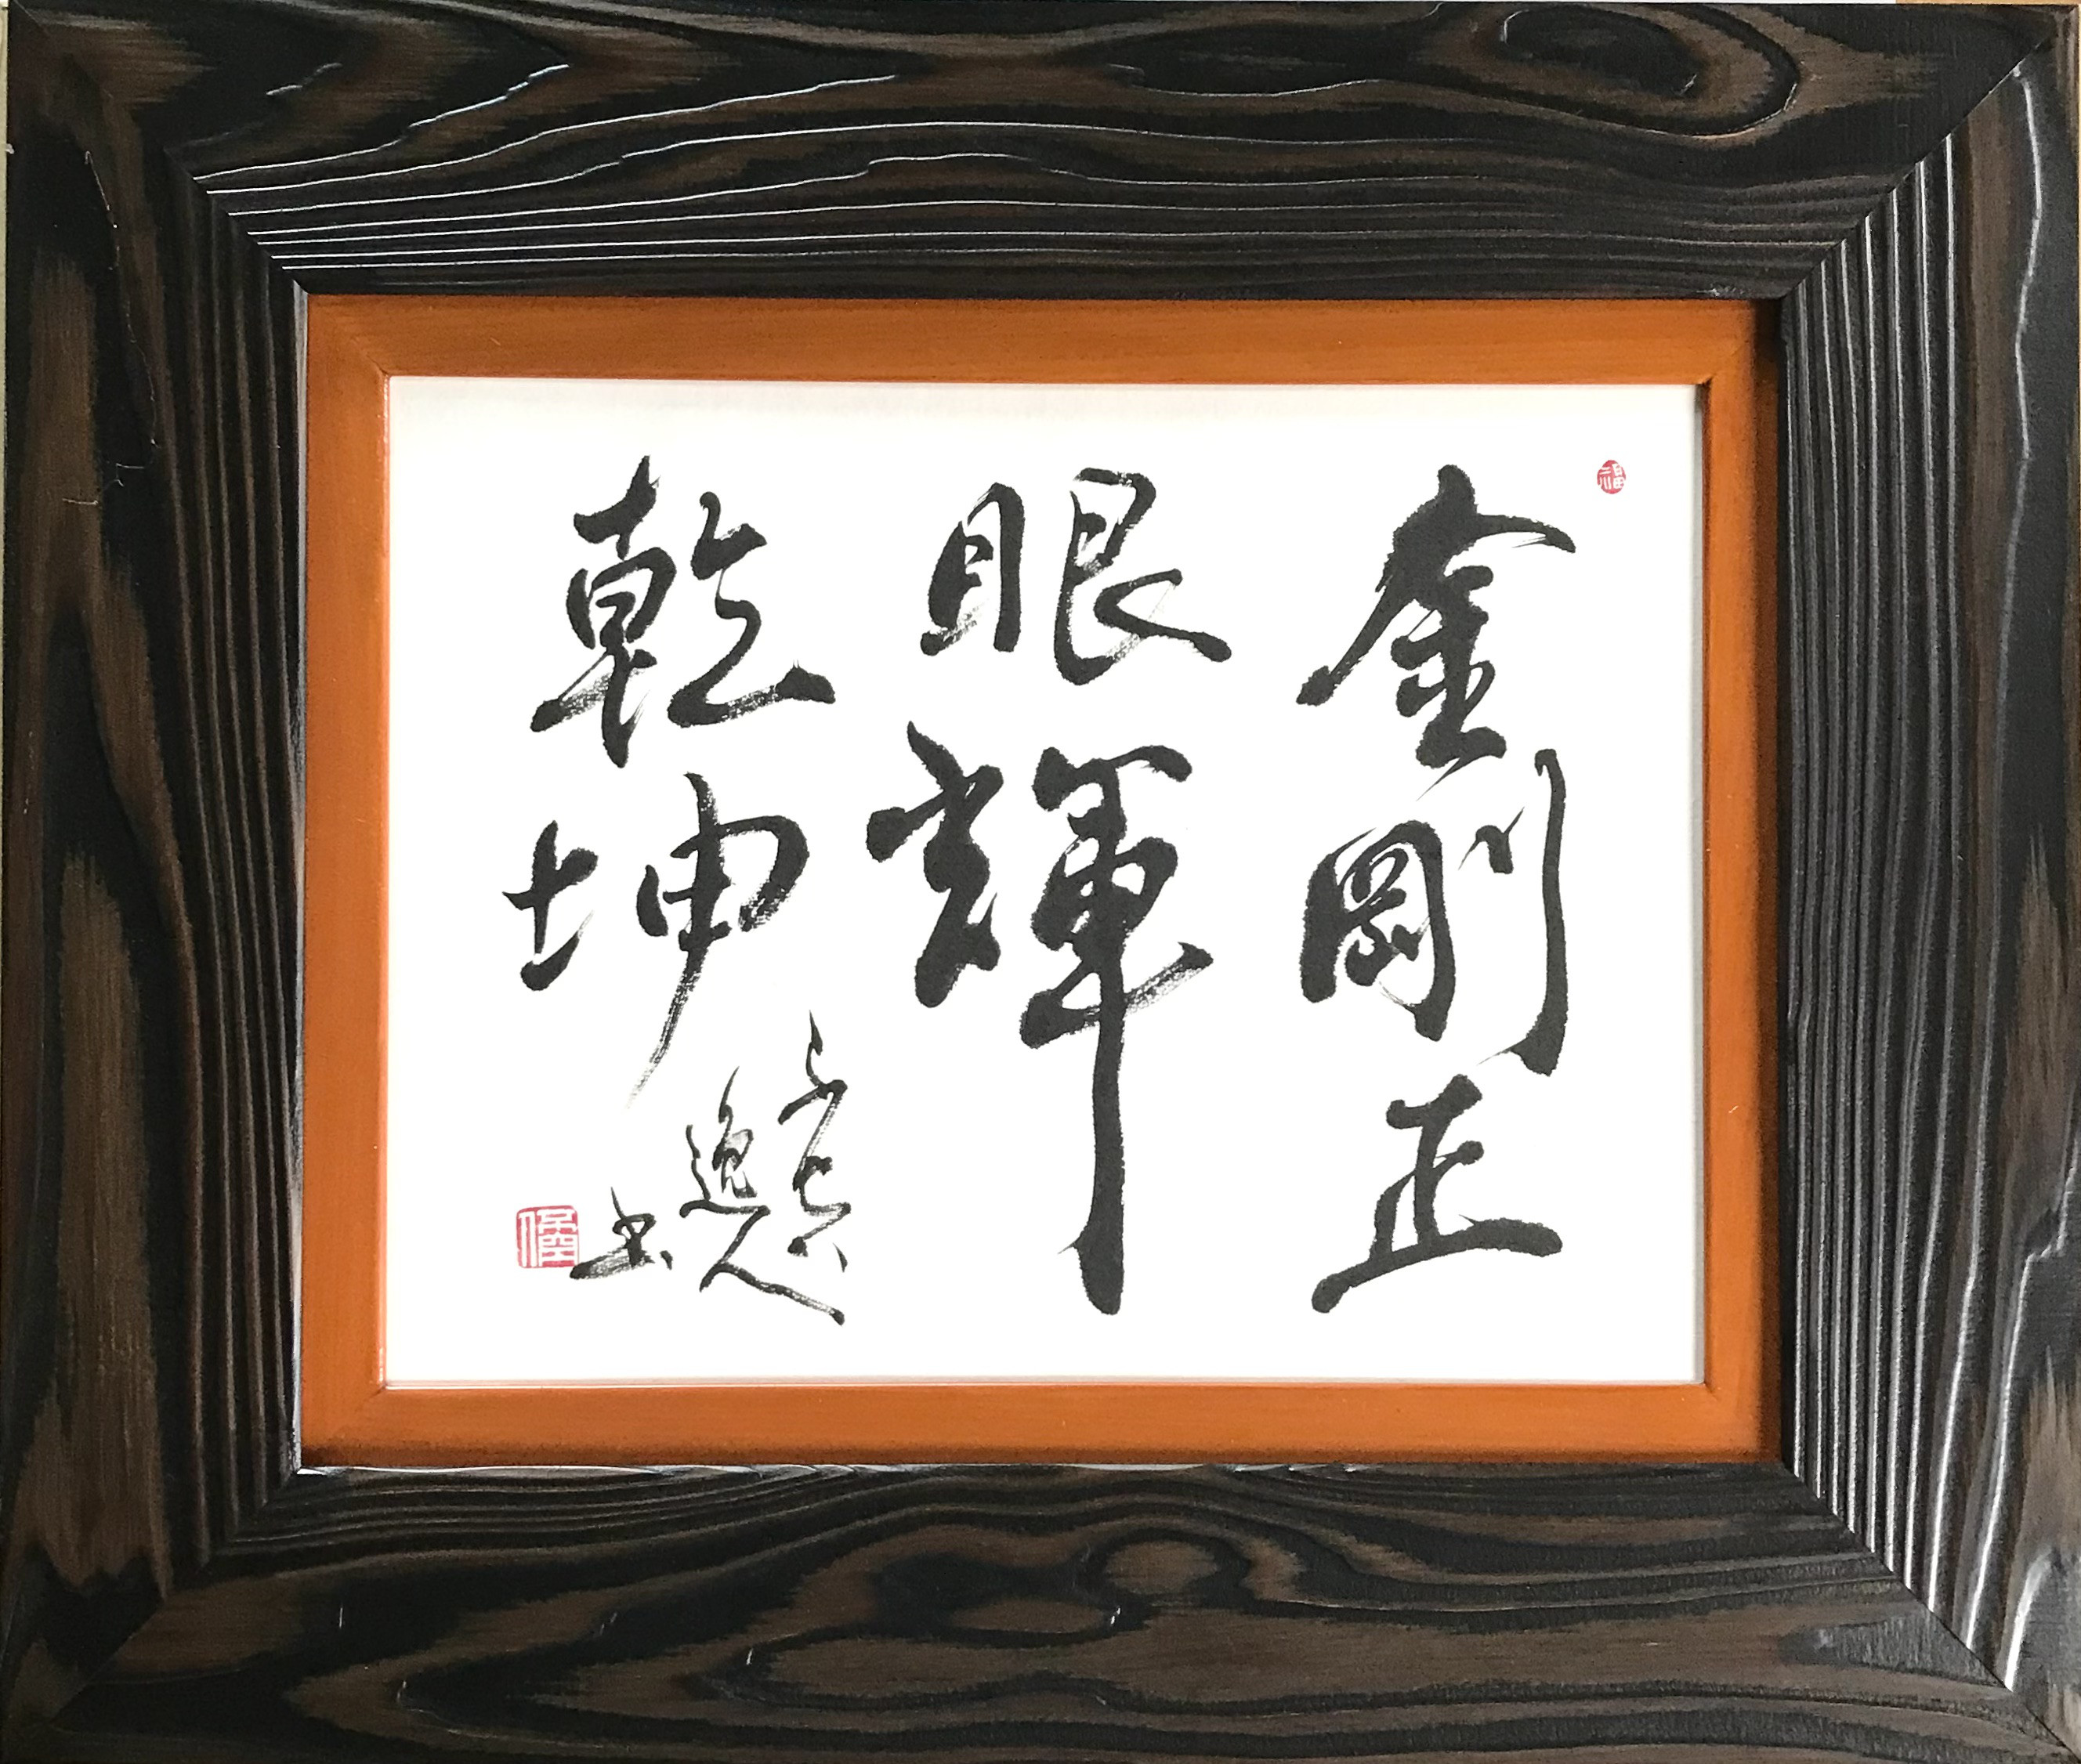 金剛正
眼輝
乾坤
逸人
書